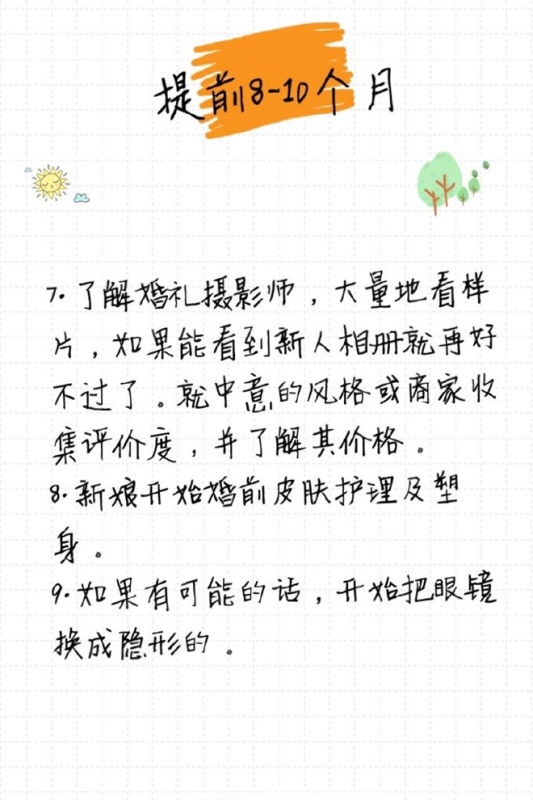 提前8-10个月
7.了解婚礼摄影师，大量地看样
片，如果能看到新人相册就再好
不过了。就中意的风格或商家收
集评价度，并了解其价格。
8.新娘开始婚前皮肤护理及塑
身。
9.如果有可能的话，开始把眼镜
换成隐形的。